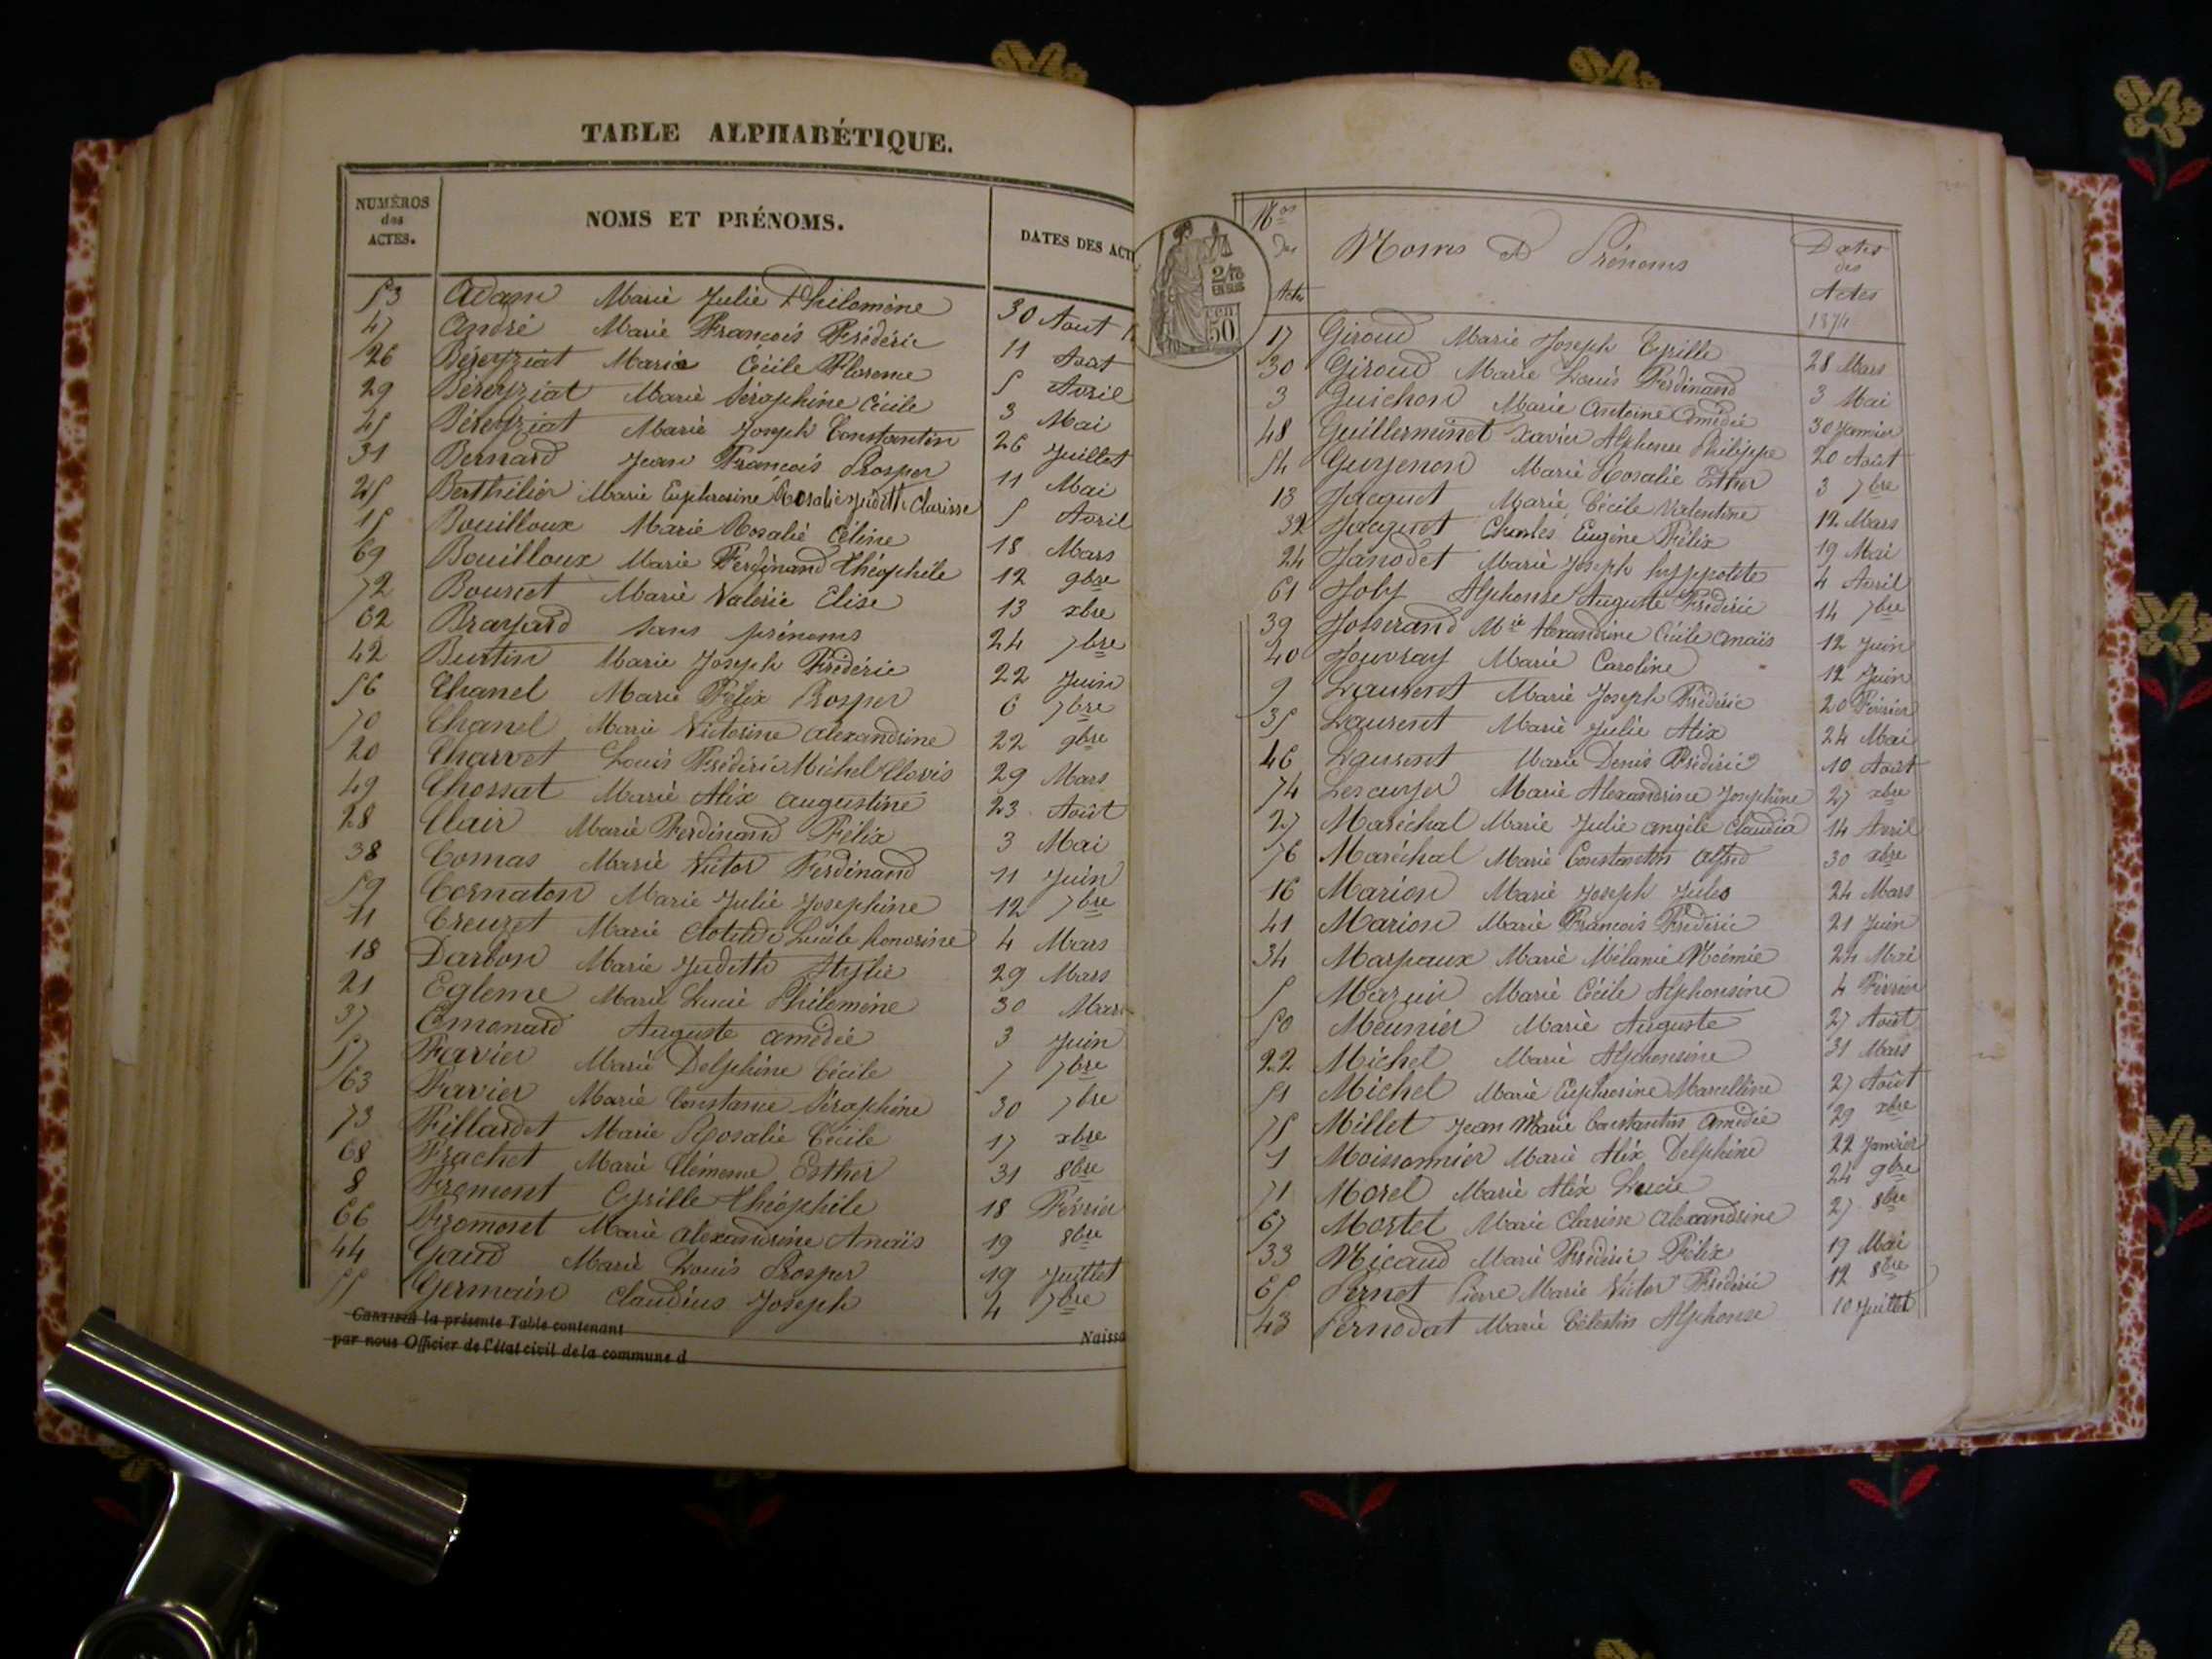 TABLE ALPHABÉTIQUE.
NUMÉROS des ACTES. NOMS ET PRÉNOMS. DATES DES ACT
53 Adam Marie Julie Philomène 30 Aout
47 André Marie François Frédéric 11 Aout
26 Béreyziat Marie Cécile Florence 5 Avril
29 Béreyziat Marie Séraphine Cécile 3 Mai
45 Béreyziat Marie Joseph Constantin 26 Juillet
31 Bernard Jean François Prosper 11 Mai
25 Berthilier Marie Euphrosine Rosalie Judith Clarisse 5 Avril
15 Bouilloux Marie Rosalie Céline 18 Mars
69 Bouilloux Marie Ferdinand Théophile 12 9bre
72 Bourcet Marie Valérie Elise 13 xbre
62 Brayard sans prénoms 24 7bre
42 Burtin Marie Joseph Frédéric 22 Juin
56 Chanel Marie Félix Prosper 6 7bre
70 Chanel Marie Victorine Alexandrine 22 9bre
20 Charvet Louis Frédéric Michel Clovis 29 Mars
49 Chossat Marie Alix Augustine 23 Août
28 Clair Marie Ferdinand Félix 3 Mai
38 Comas Marie Victor Ferdinand 11 Juin
59 Cornaton Marie Julie Josephine 12 7bre
11 Creuzet Marie Clotilde Lucile honorine 4 Mars
18 Darbon Marie Judith 29 Mars
21 Egleme Marie Lucie Philomène 30 Mars
37 Emonard Auguste Amédée 3 Juin
57 Favier Marie Delphine Cécile 7 7bre
63 Favier Marie Constance Séraphine 30 7bre
73 Fillardet Marie Rosalie Cécile 17 xbre
68 Frachet Marie Clémence Esther 31 8bre
8 Fromont Cyrille Théophile 18 Février
66 Fromont Marie Alexandrine Anaïs 19 8bre
44 Gaud Marie Louis Prosper 19 Juillet
55 Germain Claudius Joseph 4 7bre
CERTIFIÉ la présente Table contenant Naissa
par nous Officier de l'état civil de la commune d
2/10 EN SUS
50
Nos des Actes Noms et Prénoms Dates des Actes 1874
17 Giroud Marie Joseph Cyrille 28 Mars
30 Giroud Marie Louis Ferdinand 3 Mai
3 Guichon Marie Antoine Amédée 30 Janvier
48 Guillerminet Xavier Alphonse Philippe 20 Août
54 Guyenon Marie Rosalie Esther 3 7bre
13 Jacquet Marie Cécile Valentine 12 Mars
32 Jacquet Charles Eugène Félix 19 Mai
24 Janodet Marie Joseph hyppolite 4 Avril
61 Joly Alphonse Auguste Frédéric 14 7bre
39 Josserand Mie Alexandrine Cécile Anaïs 12 Juin
40 Jouvray Marie Caroline 12 Juin
9 Laurent Marie Joseph Frédéric 20 Février
35 Laurent Marie Julie Alix 24 Mai
46 Laurent Marie Denis Frédéric 10 Août
74 Lescuyer Marie Alexandrine Josephine 27 xbre
27 Maréchal Marie Julie Angèle Claudia 14 Avril
76 Maréchal Marie Constantin Alfred 30 xbre
16 Marion Marie Joseph Jules 24 Mars
41 Marion Marie François Frédéric 21 Juin
34 Marpaux Marie Mélanie Noémie 24 Mai
5 Mazuir Marie Cécile Alphonsine 4 Février
50 Meunier Marie Auguste 27 Août
22 Michel Marie Alphonsine 31 Mars
51 Michel Marie Euphrosine Marcelline 27 Août
75 Millet Jean Marie Constantin Amédée 29 xbre
1 Moissonnier Marie Alix Delphine 22 Janvier
71 Morel Marie Alix Lucie 24 9bre
67 Mortel Marie Clarisse Alexandrine 27 8bre
33 Nicaud Marie Frédéric Félix 19 Mai
65 Pernet Pierre Marie Victor Frédéric 12 8bre
43 Pernodat Marie Célestin Alphonse 10 Juillet